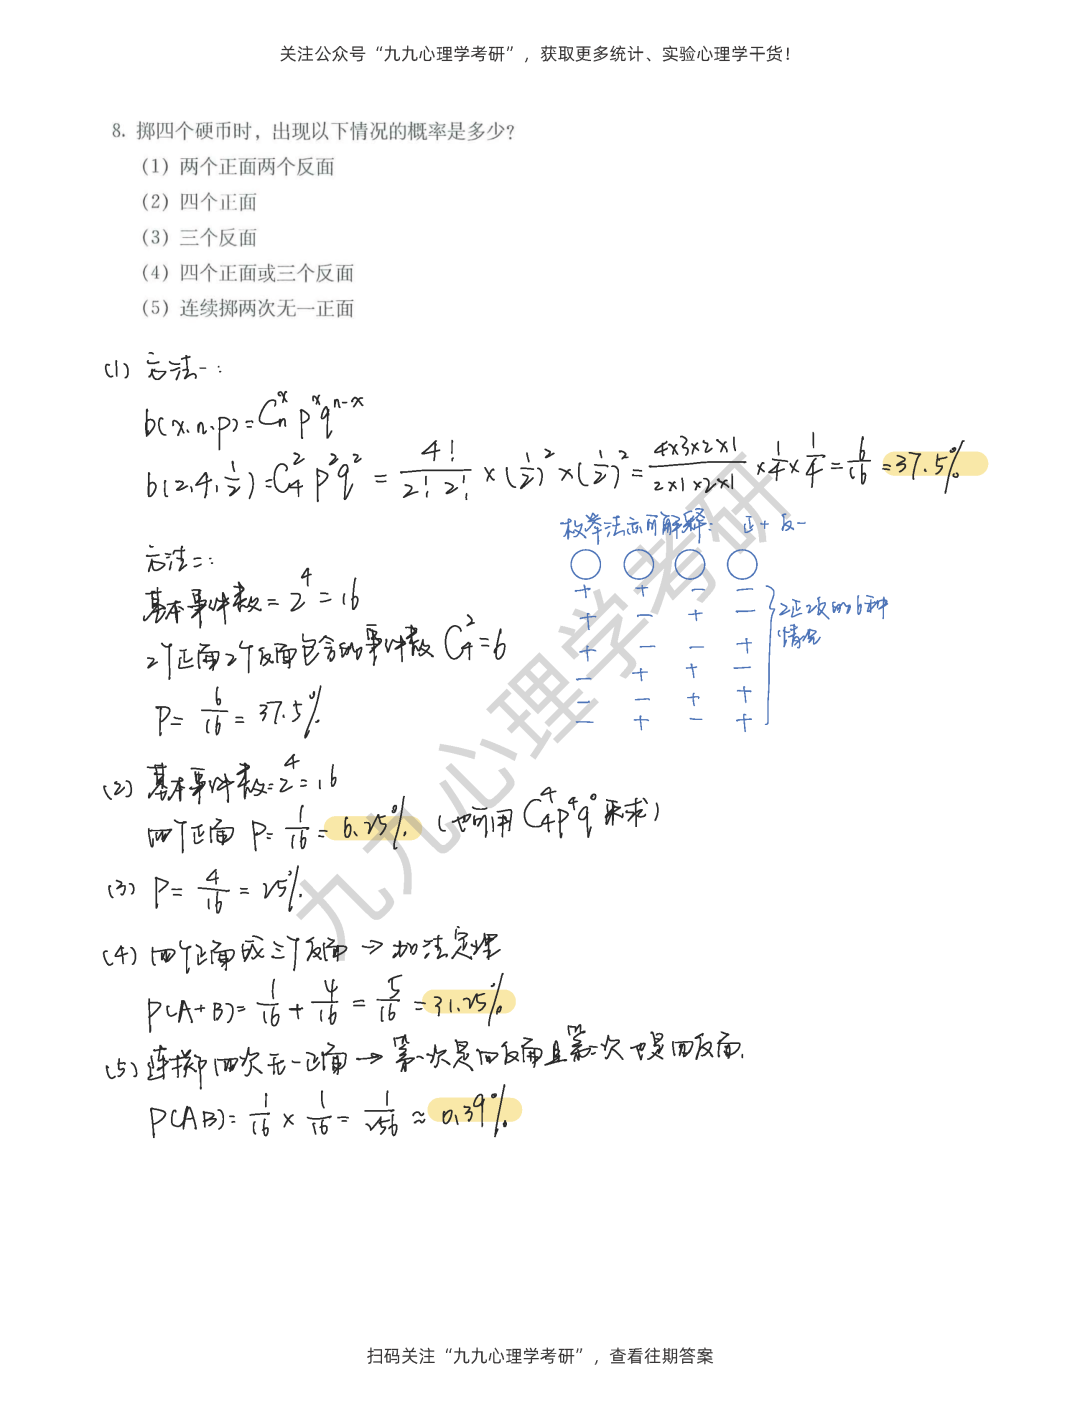 关注公众号“九九心理学考研”，获取更多统计、实验心理学干货！
8. 掷四个硬币时，出现以下情况的概率是多少？
（1）两个正面两个反面
（2）四个正面
（3）三个反面
（4）四个正面或三个反面
（5）连续掷两次无一正面
(1) 方法一：
b(x.n.p)=C_n^x p^x q^{n-x}
b(2,4,1/2)=C_4^2 p^2 q^2 = 4!/(2!2!) ×(1/2)^2×(1/2)^2= (4×3×2×1)/(2×1×2×1) ×1/4×1/4=6/16=37.5%
枚举法亦可解释： 正+ 反-
方法二：
基本事件数=2^4=16
2个正面2个反面包含的事件数 C_4^2=6
P= 6/16 = 37.5%
+ + - -
+ - + -
+ - - +
- + + -
- - + +
- + - +
2正2反的6种
情况
(2) 基本事件数=2^4=16
四个正面 P= 1/16 = 6.25%. (也可用 C_4^4 p^4 q^0 来求)
(3) P= 4/16 = 25%.
(4) 四个正面或三个反面 → 加法定理
P(A+B)= 1/16 + 4/16 = 5/16 = 31.25%
(5) 连掷四次无一正面 → 第一次是四反面且第二次也是四反面.
P(AB)= 1/16 × 1/16 = 1/256 ≈ 0.39%
九九心理学考研
扫码关注“九九心理学考研”，查看往期答案